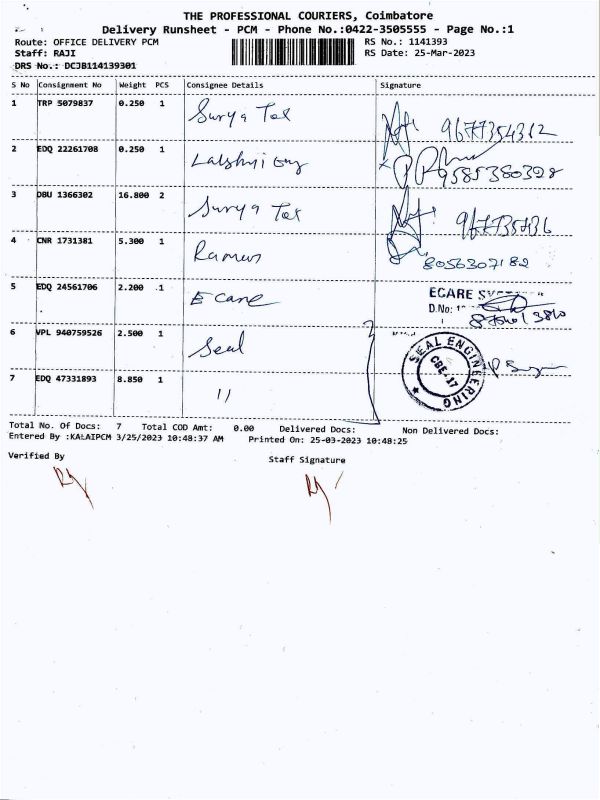 THE PROFESSIONAL COURIERS, Coimbatore
Delivery Runsheet - PCM - Phone No.:0422-3505555 - Page No.:1
Route: OFFICE DELIVERY PCM RS No.: 1141393
Staff: RAJI RS Date: 25-Mar-2023
DRS No.: DCJB114139301
S No Consignment No Weight PCS Consignee Details Signature
1 TRP 5079837 0.250 1 Surya Tex 9677354312
2 EDQ 22261708 0.250 1 9585380328
3 DBU 1366302 16.800 2 Surya Tex
4 CNR 1731381 5.300 1 8056307182
5 EDQ 24561706 2.200 1 E care ECARE
D.No:
6 VPL 940759526 2.500 1 Seal SEAL ENGINEERING
CBE-17
7 EDQ 47331893 8.850 1 11
Total No. Of Docs: 7 Total COD Amt: 0.00 Delivered Docs: Non Delivered Docs:
Entered By :KALAIPCM 3/25/2023 10:48:37 AM Printed On: 25-03-2023 10:48:25
Verified By Staff Signature